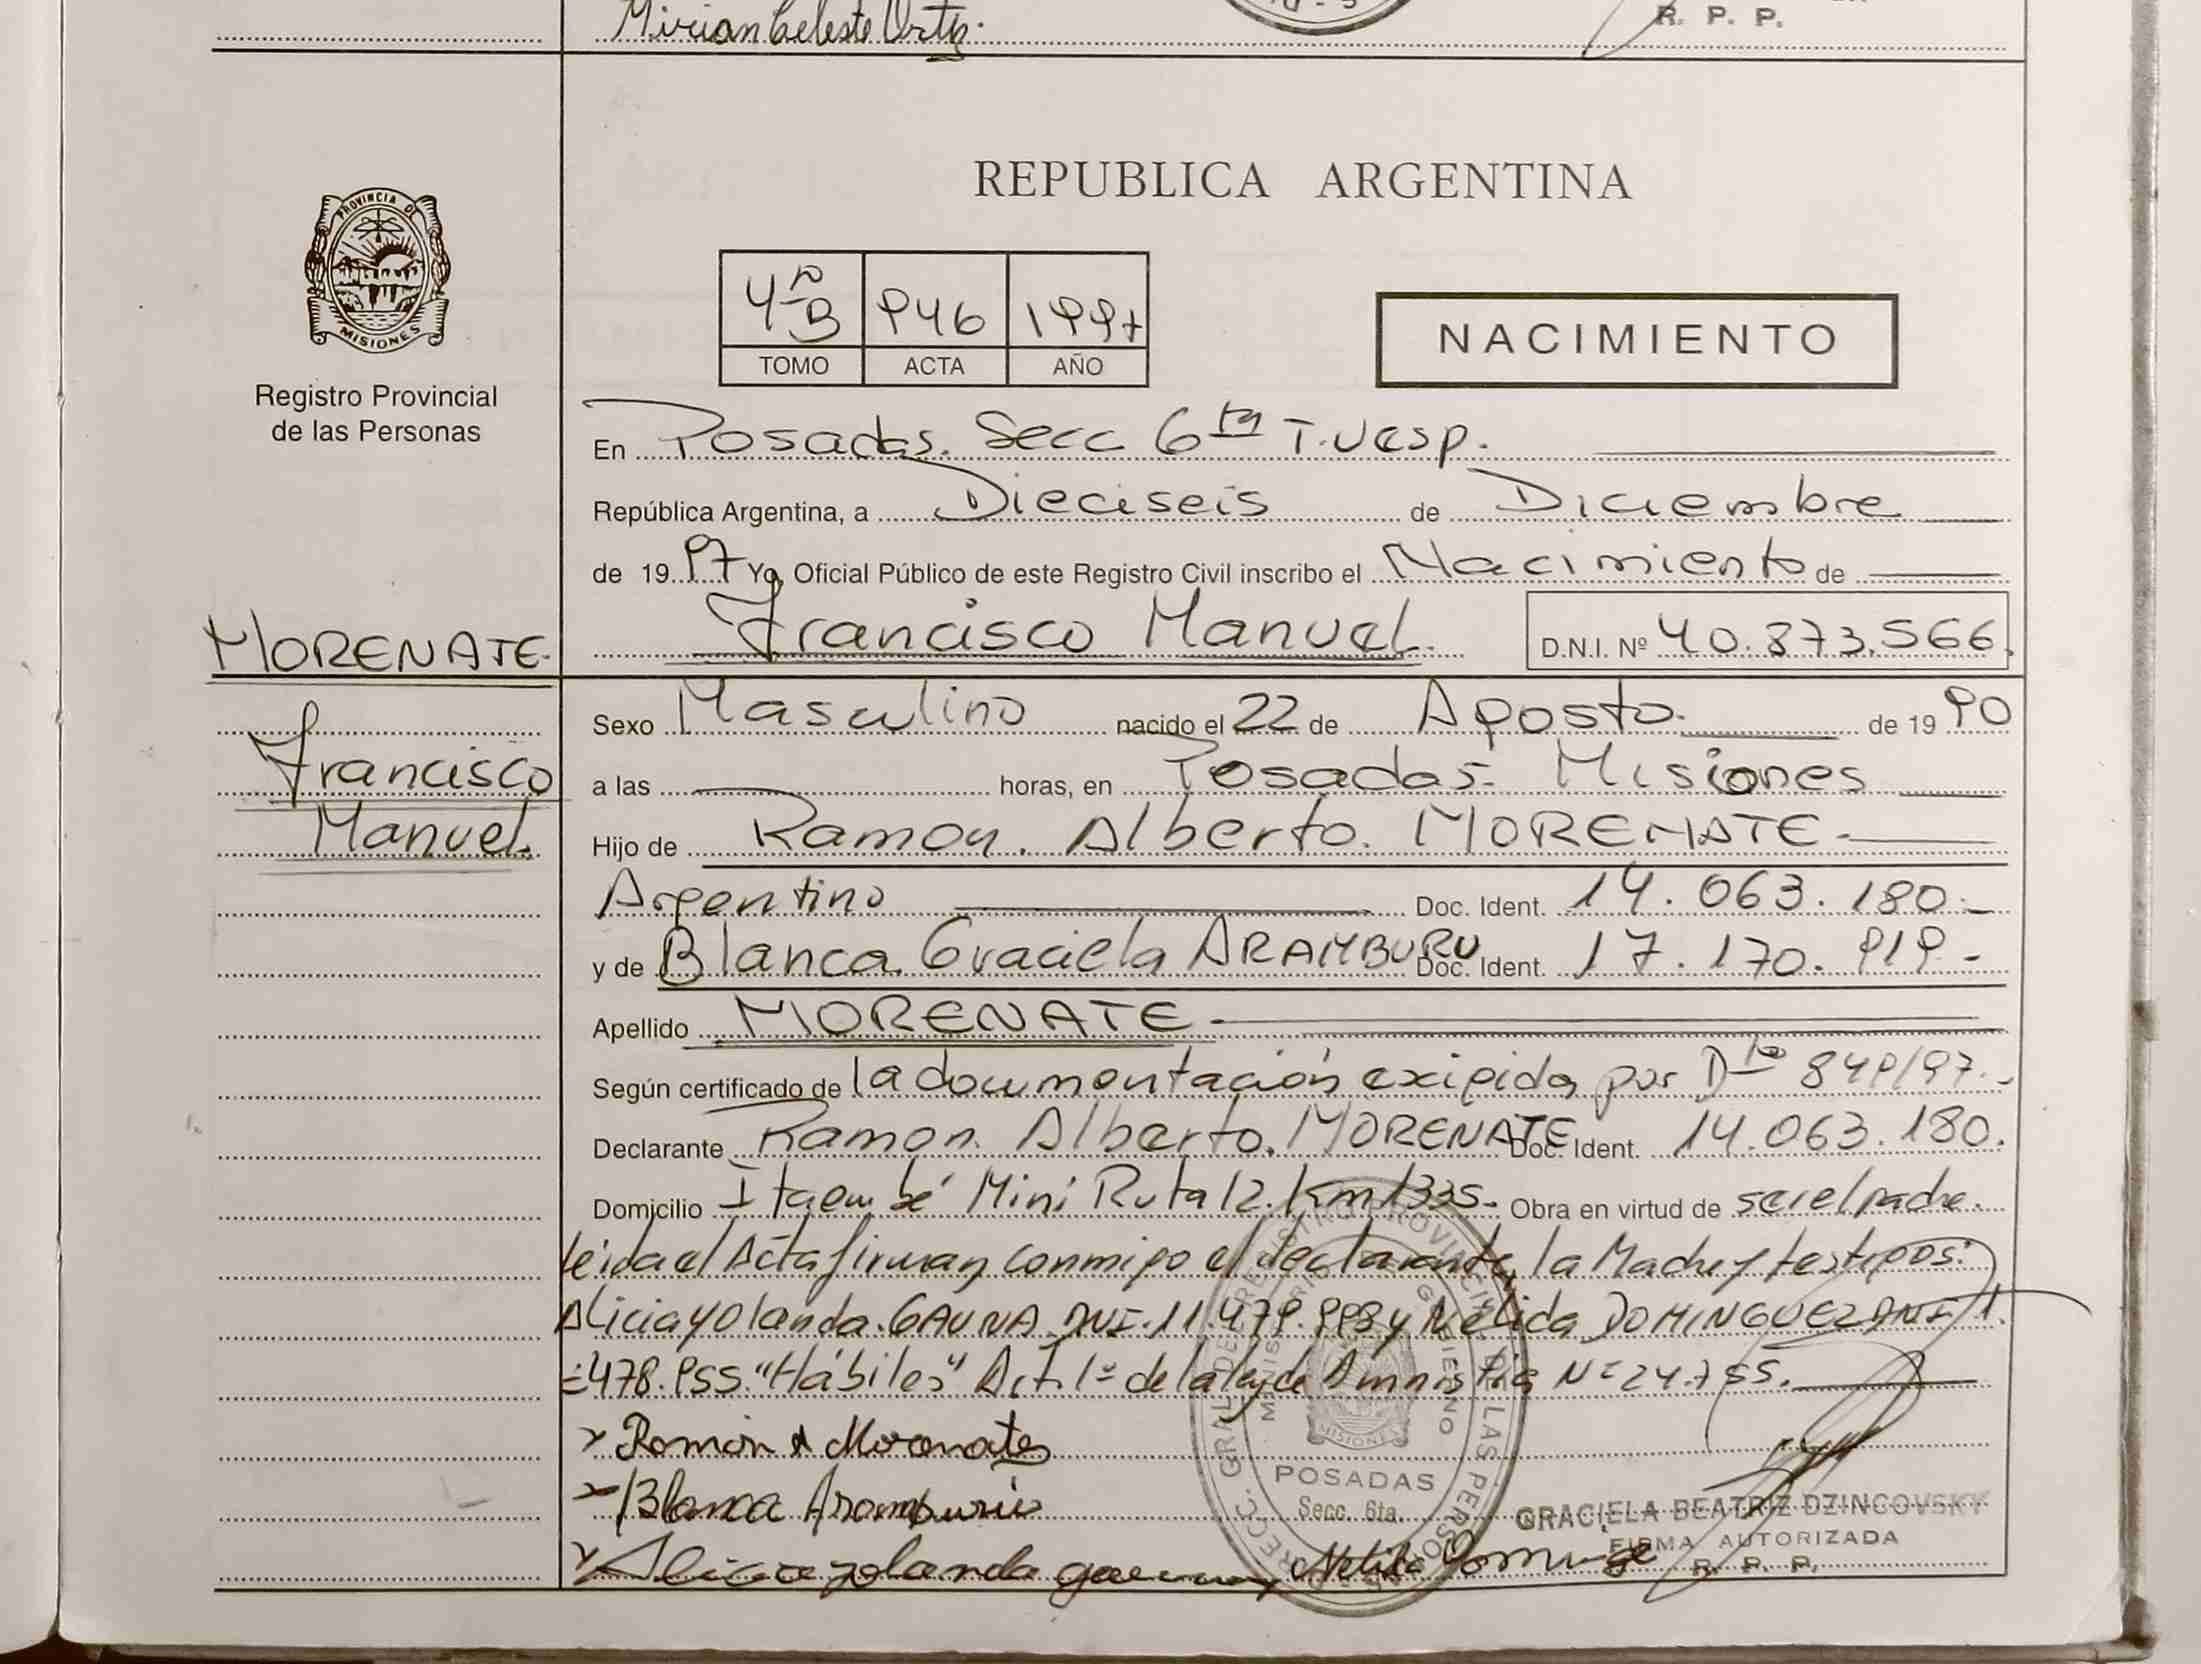 Mirian Celeste Ortiz.
R. P. P.
REPUBLICA ARGENTINA
PROVINCIA DE
MISIONES
Registro Provincial
de las Personas
4º B 946 1997
TOMO ACTA AÑO
NACIMIENTO
En Posadas. Secc 6ta T. Vesp.
República Argentina, a Dieciseis de Diciembre
de 1997 Yo, Oficial Público de este Registro Civil inscribo el Nacimiento de
Francisco Manuel. D.N.I. Nº 40.873.566.
MORENATE.
Francisco
Manuel.
Sexo Masculino nacido el 22 de Agosto. de 1990
a las horas, en Posadas. Misiones
Hijo de Ramon. Alberto. MORENATE.
Argentino Doc. Ident. 14.063.180.-
y de Blanca. Graciela ARAMBURU Doc. Ident. 17.170.919.-
Apellido MORENATE.
Según certificado de la documentación exigida por Dto 849/97.-
Declarante Ramon. Alberto. MORENATE Doc. Ident. 14.063.180.
Domicilio Itaembé Mini Ruta 12. Km 1335. Obra en virtud de ser el padre.
leida el Acta firman conmigo el declarante, la Madre y testigos:
Alicia Yolanda. GAUNA. DNI. 11.479.998 y Nélida DOMINGUEZ DNI 11.
=478.955. "Hábiles" Art. 1º de la ley de Amnistia Nº 24.755.
Ramón A Morenate
Blanca Aramburu
Alicia yolanda gauna Nelida Domingue
DIRECC. GRAL DE REGISTRO PROVINCIAL DE LAS PERSONAS
MINISTERIO GOBIERNO
MISIONES
POSADAS
Secc. 6ta.
GRACIELA BEATRIZ DZINCOVSKY
FIRMA AUTORIZADA
R. P. P.